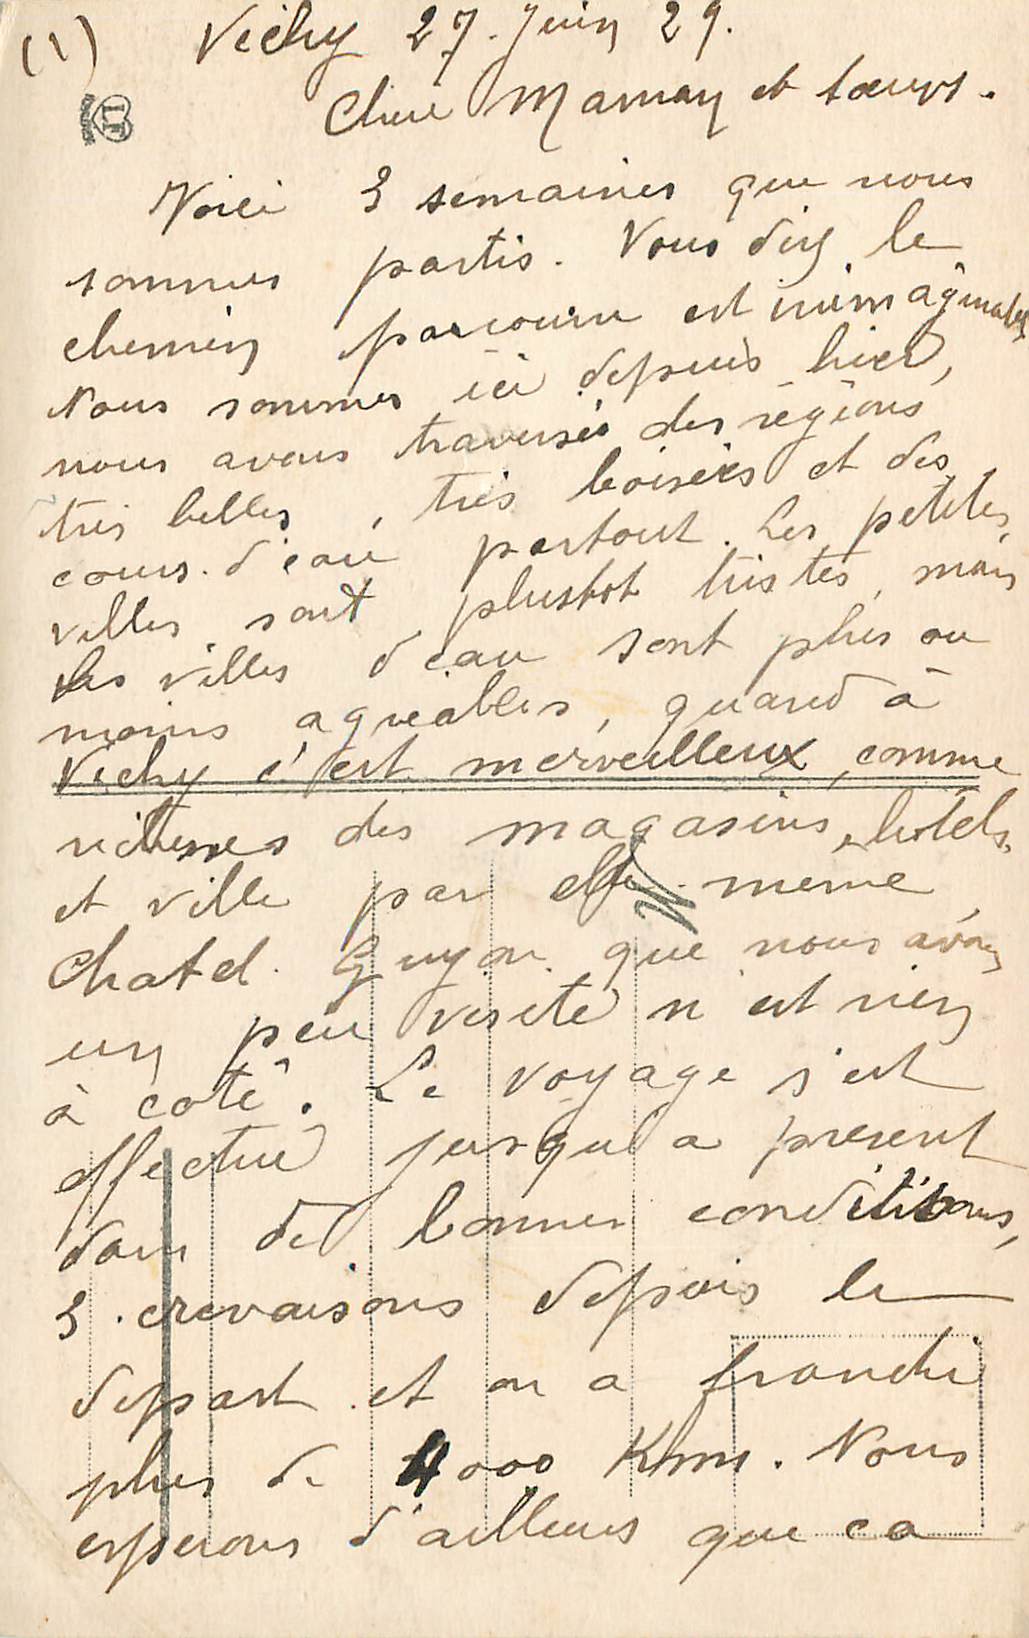 (1) Vichy 27. Juin 29.
Chère Maman et sœurs.
Voici 3 semaines que nous
sommes partis. Vous dire le
chemin parcouru est inimaginable
Nous sommes ici depuis hier,
nous avons traversés des régions
très belles, très boisées et des
cours. d'eau partout. Les petites
villes sont plustot tristes, mais
les villes d'eau sont plus ou
moins agréables, quand à
Vichy c'est merveilleux, comme
richesses des magasins, hôtels,
et ville par elle-même,
Chatel. Guyon que nous avons
un peu visité n'est rien
à coté. Le voyage s'est
effectué jusqu'à présent
dans de bonnes conditions,
3. crevaisons depuis le
depart et on a franchi
plus de 4000 Kms. Nous
esperons d'ailleurs que ca